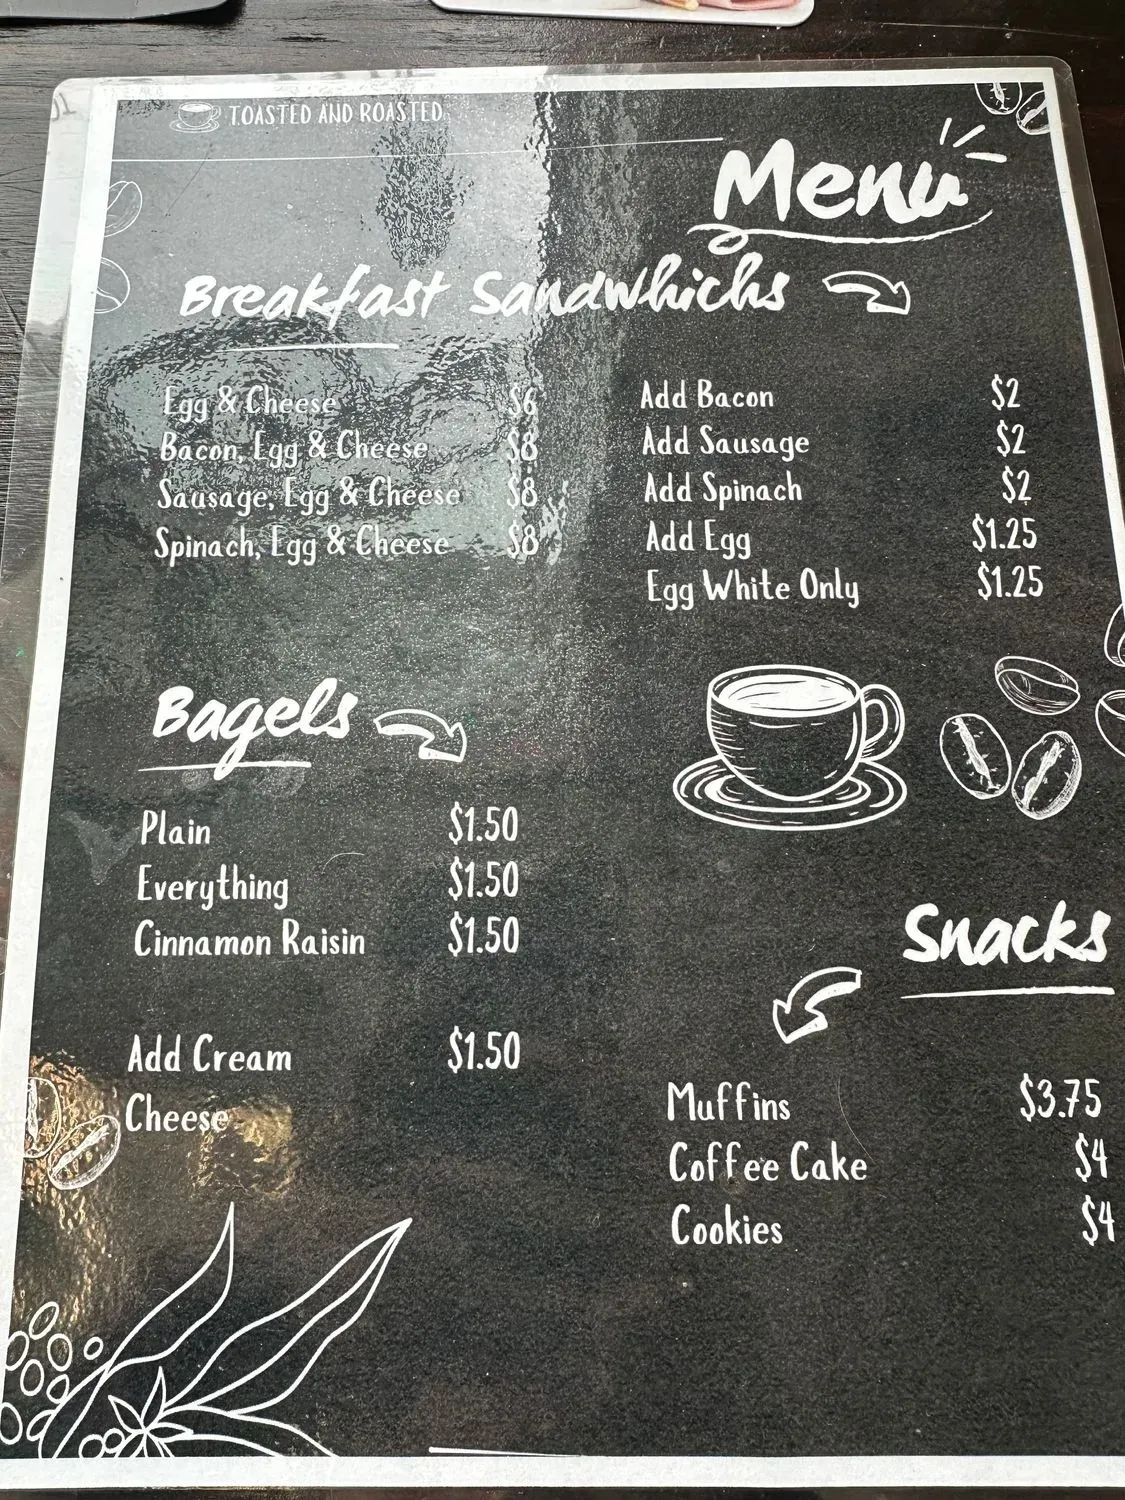 TOASTED AND ROASTED
Menu
Breakfast Sandwhichs
Egg & Cheese $6
Bacon, Egg & Cheese $8
Sausage, Egg & Cheese $8
Spinach, Egg & Cheese $8
Add Bacon $2
Add Sausage $2
Add Spinach $2
Add Egg $1.25
Egg White Only $1.25
Bagels
Plain $1.50
Everything $1.50
Cinnamon Raisin $1.50
Add Cream $1.50
Cheese
Snacks
Muffins $3.75
Coffee Cake $4
Cookies $4